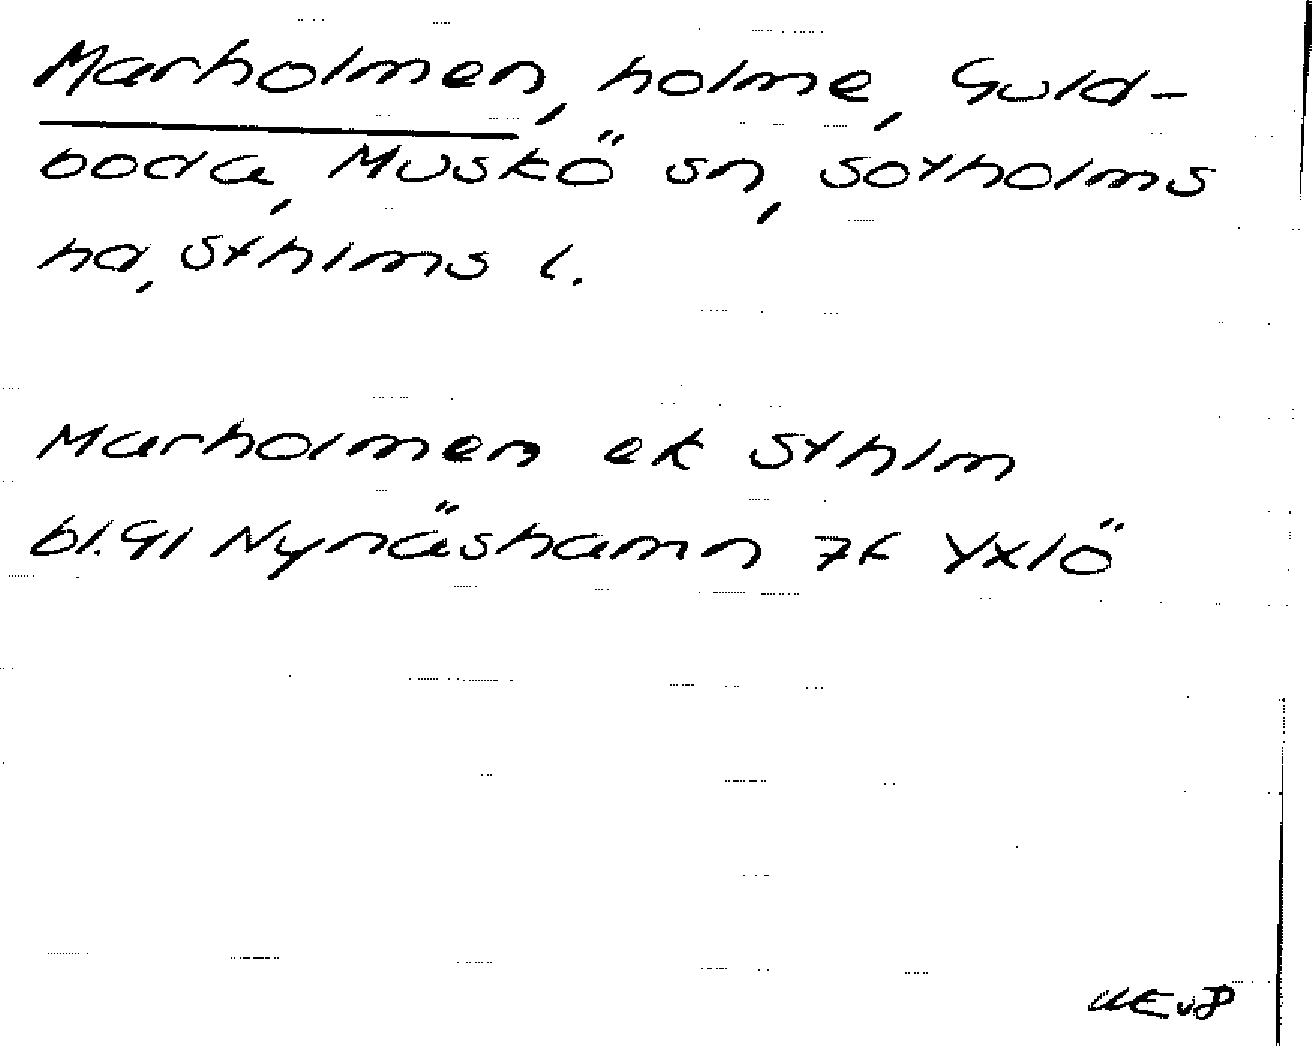 Marholmen, holme, Guld-
boda, Muskö sn, Sotholms
hd, Sthlms l.
Marholmen ek Sthlm
bl. 91 Nynäshamn 7f Yxlö